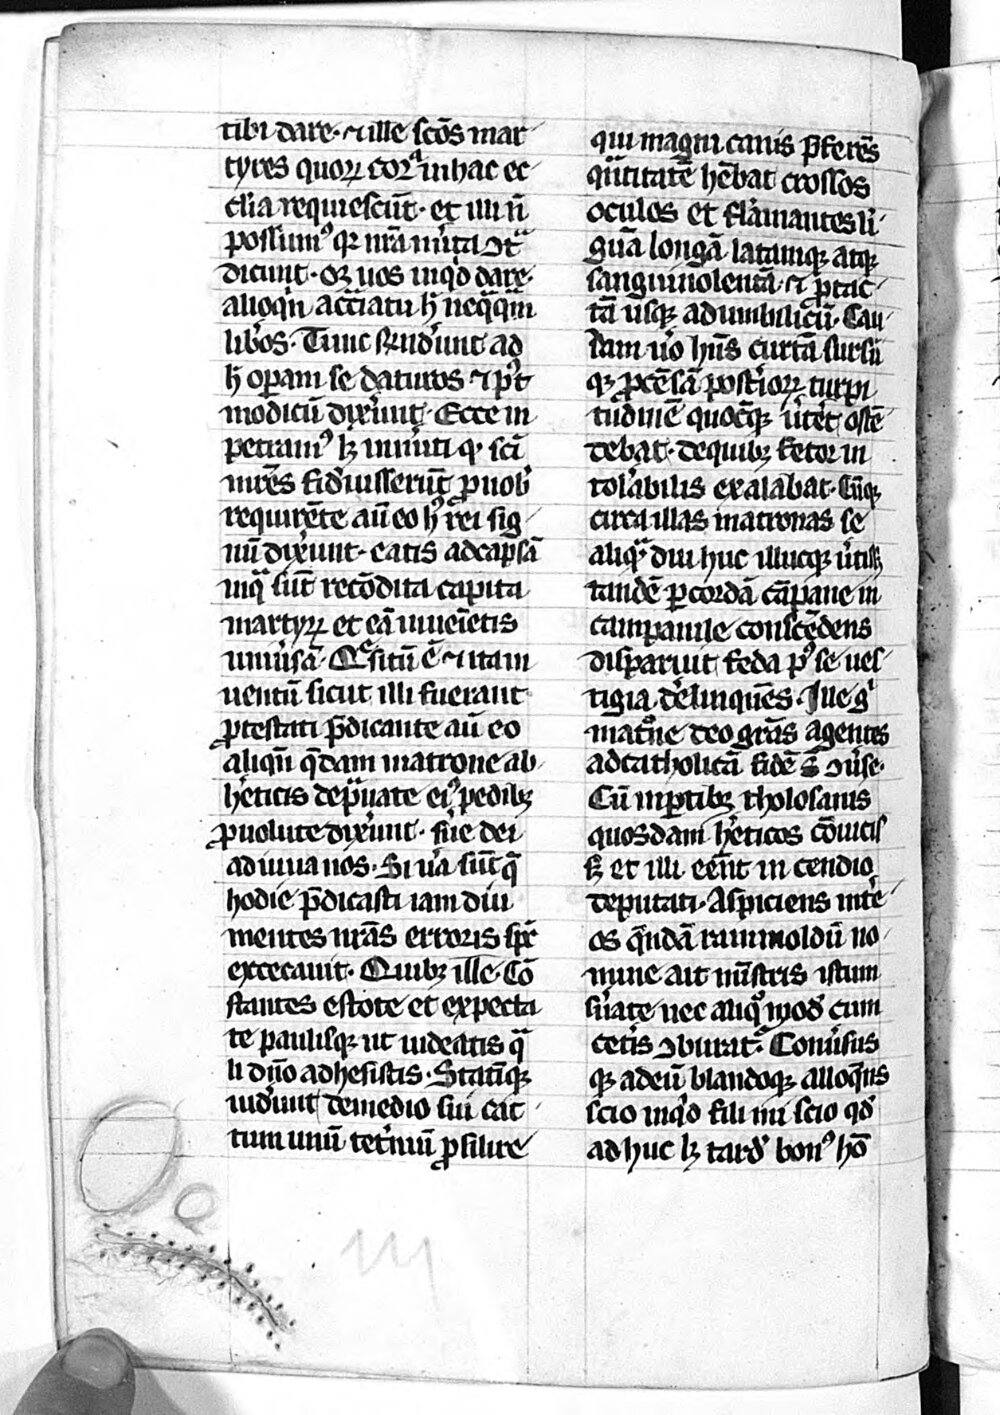 tibi dare. ⁊ ille scōs mar
tyres quoꝝ corᵃ in hac ec
clia requiescūt. et illi nō
possumꝰ qꝛ nr̄a mūta ↄtᵃ
dicunt. Oꝫ uos inqͥd dare.
alioqͥn acc̄iatu h̄ neqᵃqᵃm
libos. Tunc rn̄derunt ad
h̄ oꝑam se daturos ⁊ pꝰt
modicū dixerunt. Ecce in
petramꝰ lꝫ inuiti qꝛ sc̄i
mr̄es fideiusserūt ꝓ nob̄
requirēte aū eo hꝰ rei sig
nū dixerunt. eatis ad capsā
in qᵃ sūt recōdita capita
martyrꝝ et eā inueīetis
uniūsā. Qͤsitū ē ⁊ ita in
uentū sicut illi fuerant
ꝓtestati p̄dicante aū eo
aliqn̄ qᵈdam matrone ab
h̄eticis depᵃuate eiꝰ pedibꝫ
ꝓuolute dixerunt. sūe dei
adiuua nos. Si ūa sūt q̄
hodie p̄dicasti iam diu
mentes nr̄as erroris sp̄c
excecauit. Quibꝫ ille. Cō
stantes estote et expecta
te paulisꝑ ut uideatis qᵃ
li dn̄o adhesistis. Statīqꝫ
uiderunt de medio sui cat
tum unū teterimū ꝓsilire
qui magni canis p̄ferēs
qᵃntitatē hēbat grossos
oculos et flāmantes li
guā longā latamqꝫ atqꝫ
sanguinolentā. ⁊ ꝓtrac
tā usqꝫ ad umbilicū. Cau
dam uͦo hn̄s curtā sursū
qꝫ ꝓtēsā posterioꝝ turpi
tudinē quocūqꝫ ūt̄et ostē
debat. de quibꝫ fetor in
tolerabilis exalabat. Cūqꝫ
circa illas matronas se
aliqᵃdiu huc illucqꝫ ūtiss
tandē ꝑ cordā cāpane in
campanile conscēdens
disparuit feda pꝰ se ues
tigia derelinquēs. Ille gͥ
matrōe deo grās agentes
ad catholicā fidē sūt ↄuerse.
Cū in ꝑtibꝫ tholosanis
quosdam h̄eticos cōuicis
sꝫ et illi eēnt in cendio
deputati. Aspiciens inte
os qͤndā raimoldū no
mine ait mīstris istum
suate nec aliqͦ modo cum
ceteris ↄburatᵘr. Conuersus
qꝫ ad eū blandoqꝫ alloqͤns
scio inqͥd fili mi scio qd̄
ad huc lꝫ tarde bonꝰ hō